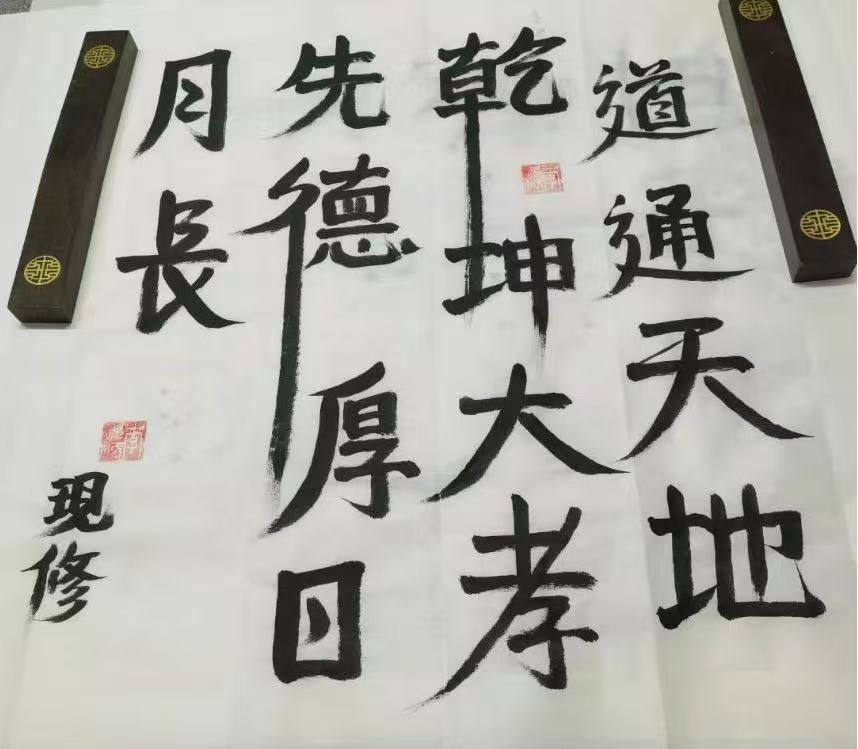 道通天地
乾坤大孝
先德厚日
月長
現修